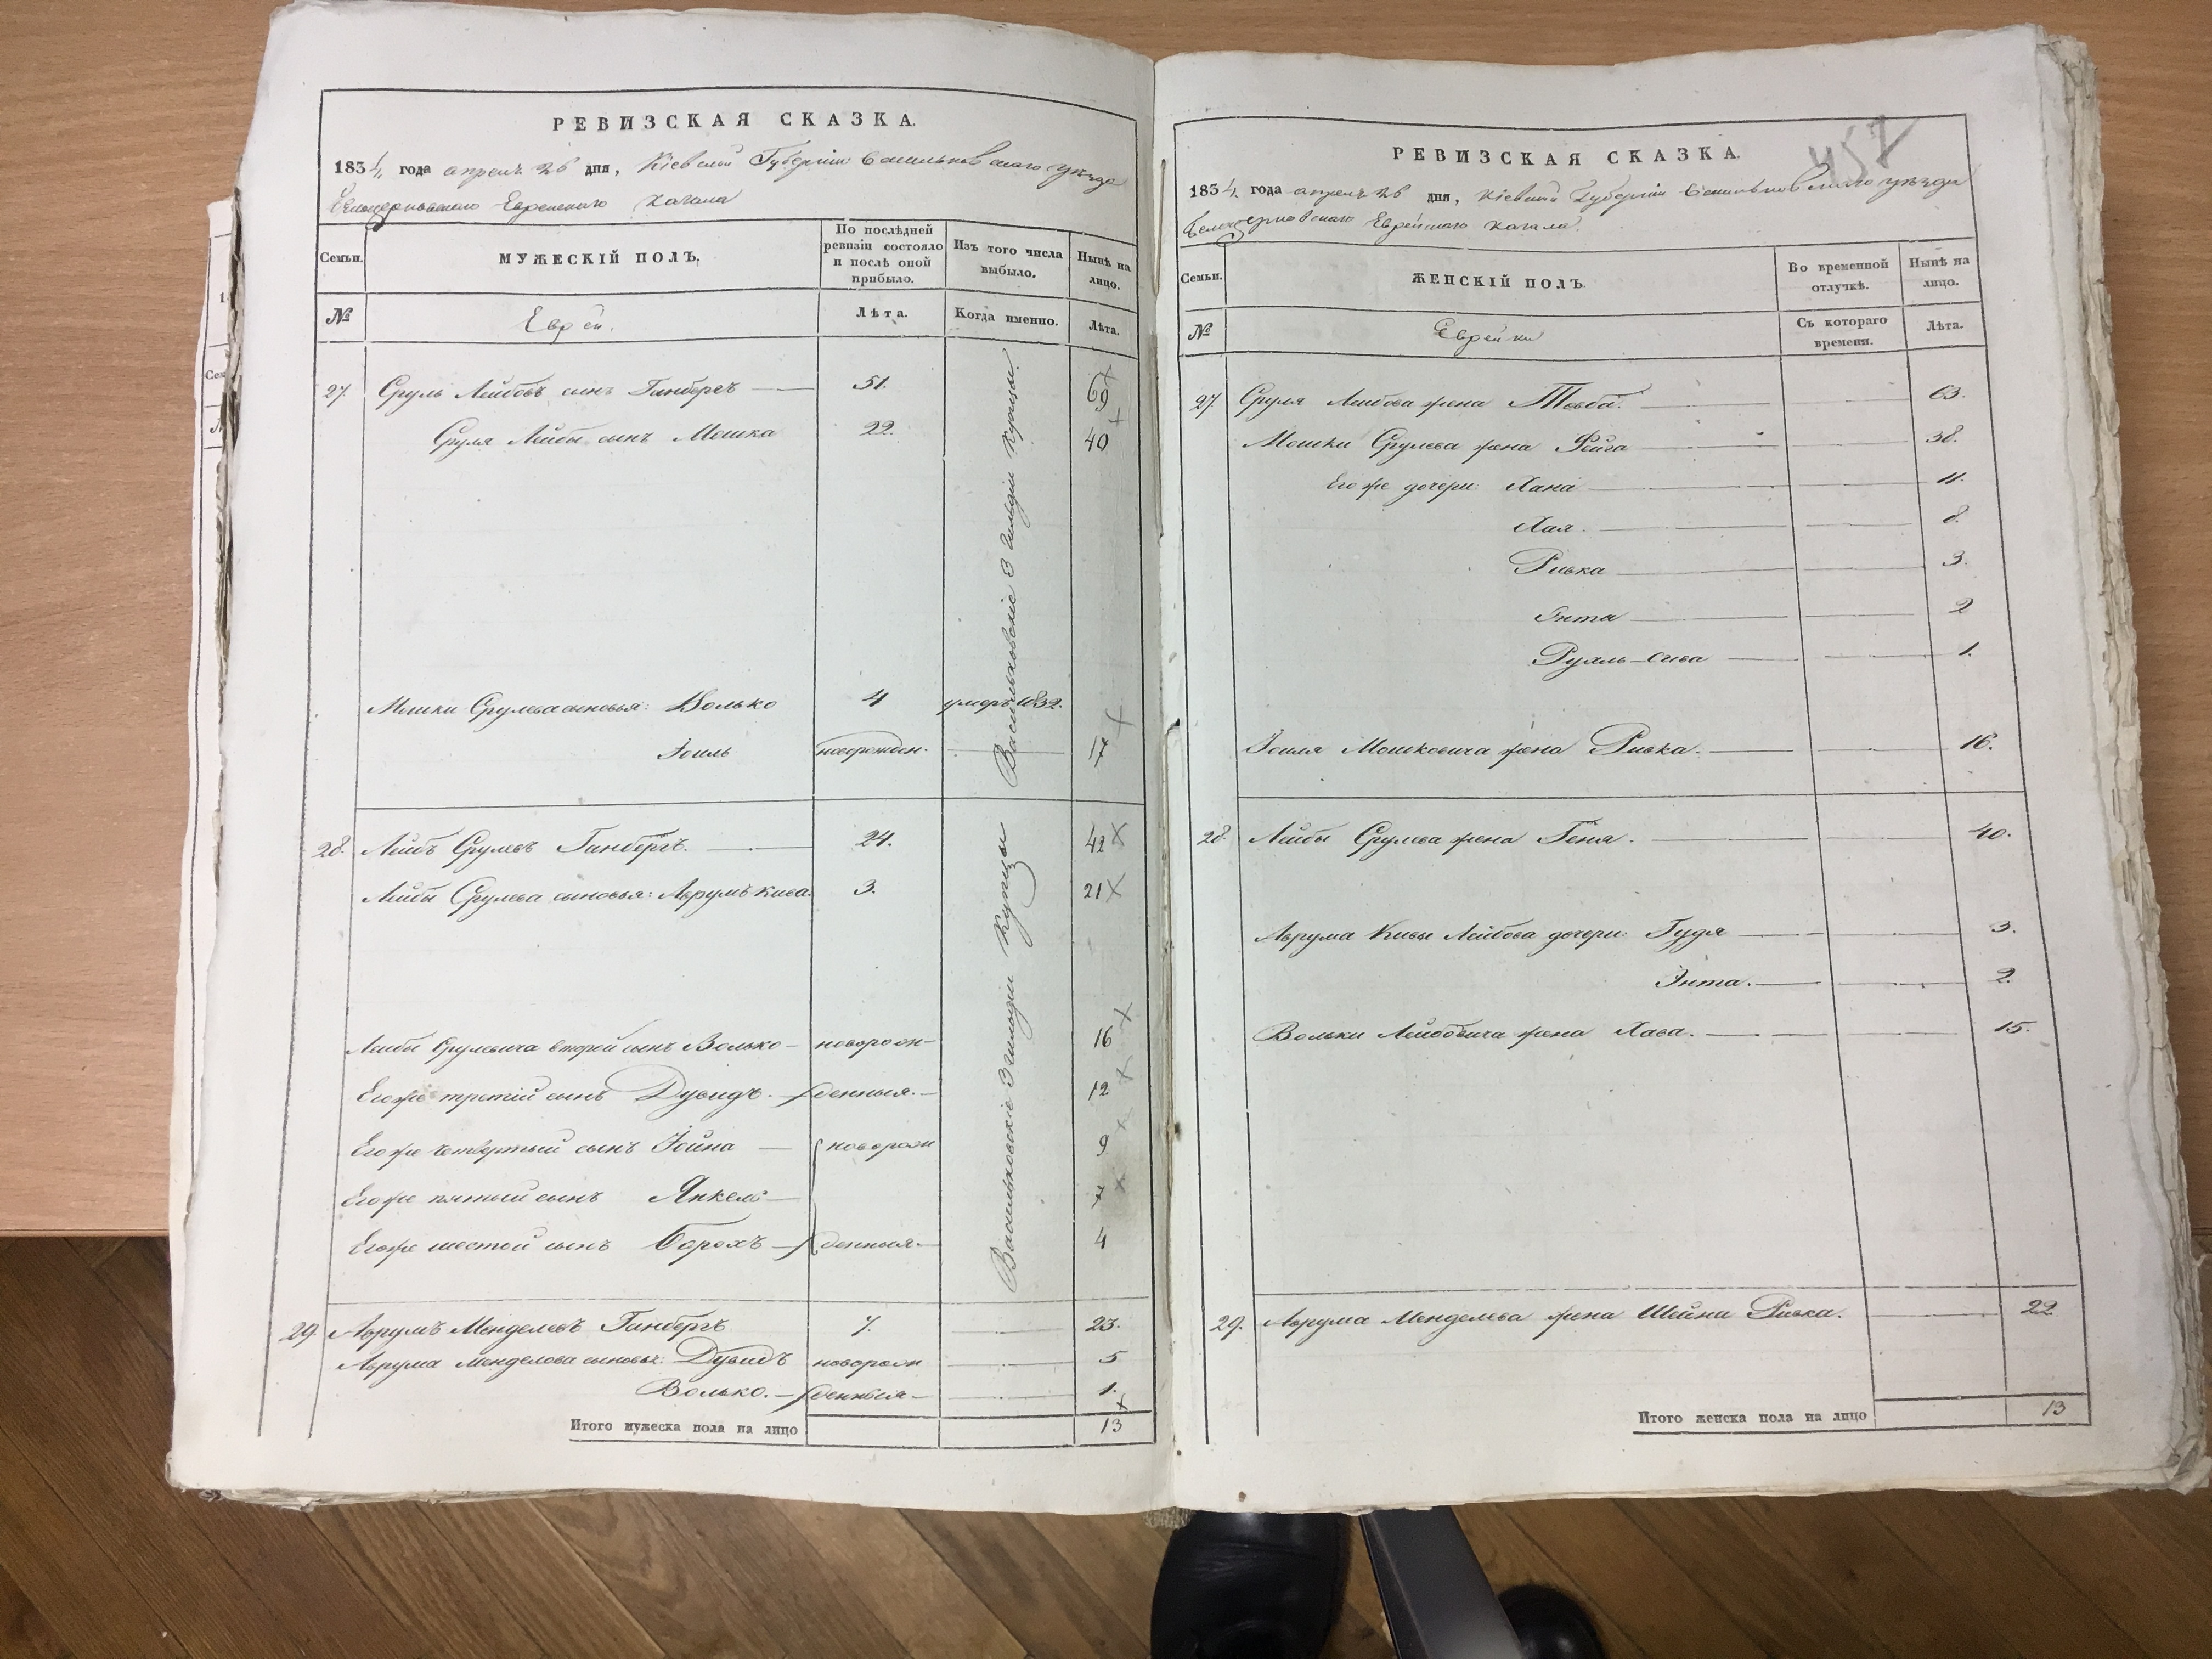 РЕВИЗСКАЯ СКАЗКА.
1834 года апреля 26 дня, Кіевской Губерніи Васильковскаго уѣзда
Белоцерковскаго Еврейскаго Кагала
Семьи.
МУЖЕСКІЙ ПОЛЪ.
По послѣдней ревизіи состояло и послѣ оной прибыло.
Изъ того числа выбыло.
Нынѣ на лицо.
№
Еврей.
Лѣта.
Когда именно.
Лѣта.
27. Сруль Лейбовъ сынъ Ганбергъ 51. 69
Сруля Лейбы сынъ Мошка 22. 40
Мошки Срулева сыновья: Волько 4 умеръ 1832.
Іоиль новорожден. 17
Васильковскіе 3 гильдіи Купцы.
28. Лейбъ Срулевъ Ганбергъ. 24. 42
Лейбы Срулева сыновья: Аврумъ Кива. 3. 21
Лейбы Срулевича второй сынъ Волько новорож- 16
Его же третій сынъ Дувидъ. денныя. 12
Его же четвертый сынъ Іойна новорож 9
Его же пятый сынъ Янкель 7
Его же шестой сынъ Борохъ денныя. 4
Васильковскіе 3 гильдіи Купцы
29. Аврумъ Менделевъ Ганбергъ 7. 23.
Аврума Менделева сыновья: Дувидъ новорож 5
Волько. денныя 1.
Итого мужеска пола на лицо 13
457
РЕВИЗСКАЯ СКАЗКА.
1834 года апреля 26 дня, Кіевской Губерніи Васильковскаго уѣзда
Белоцерковскаго Еврейскаго Кагала.
Семьи.
ЖЕНСКІЙ ПОЛЪ.
Во временной отлучкѣ.
Нынѣ на лицо.
№
Еврейки
Съ котораго времени.
Лѣта.
27. Сруля Лейбова жена Товба. 63.
Мошки Срулева жена Фейга 38.
Его же дочери: Хана 11.
Хая. 8.
Ривка 3.
Энта 2
Рухль-Сива 1.
Іоиля Мошковича жена Ривка. 16.
28. Лейбы Срулева жена Геня. 40.
Аврума Кивы Лейбова дочери: Гудя 3.
Энта. 2.
Вольки Лейбовича жена Хава. 15.
29. Аврума Менделева жена Шейна Ривка. 22
Итого женска пола на лицо 13